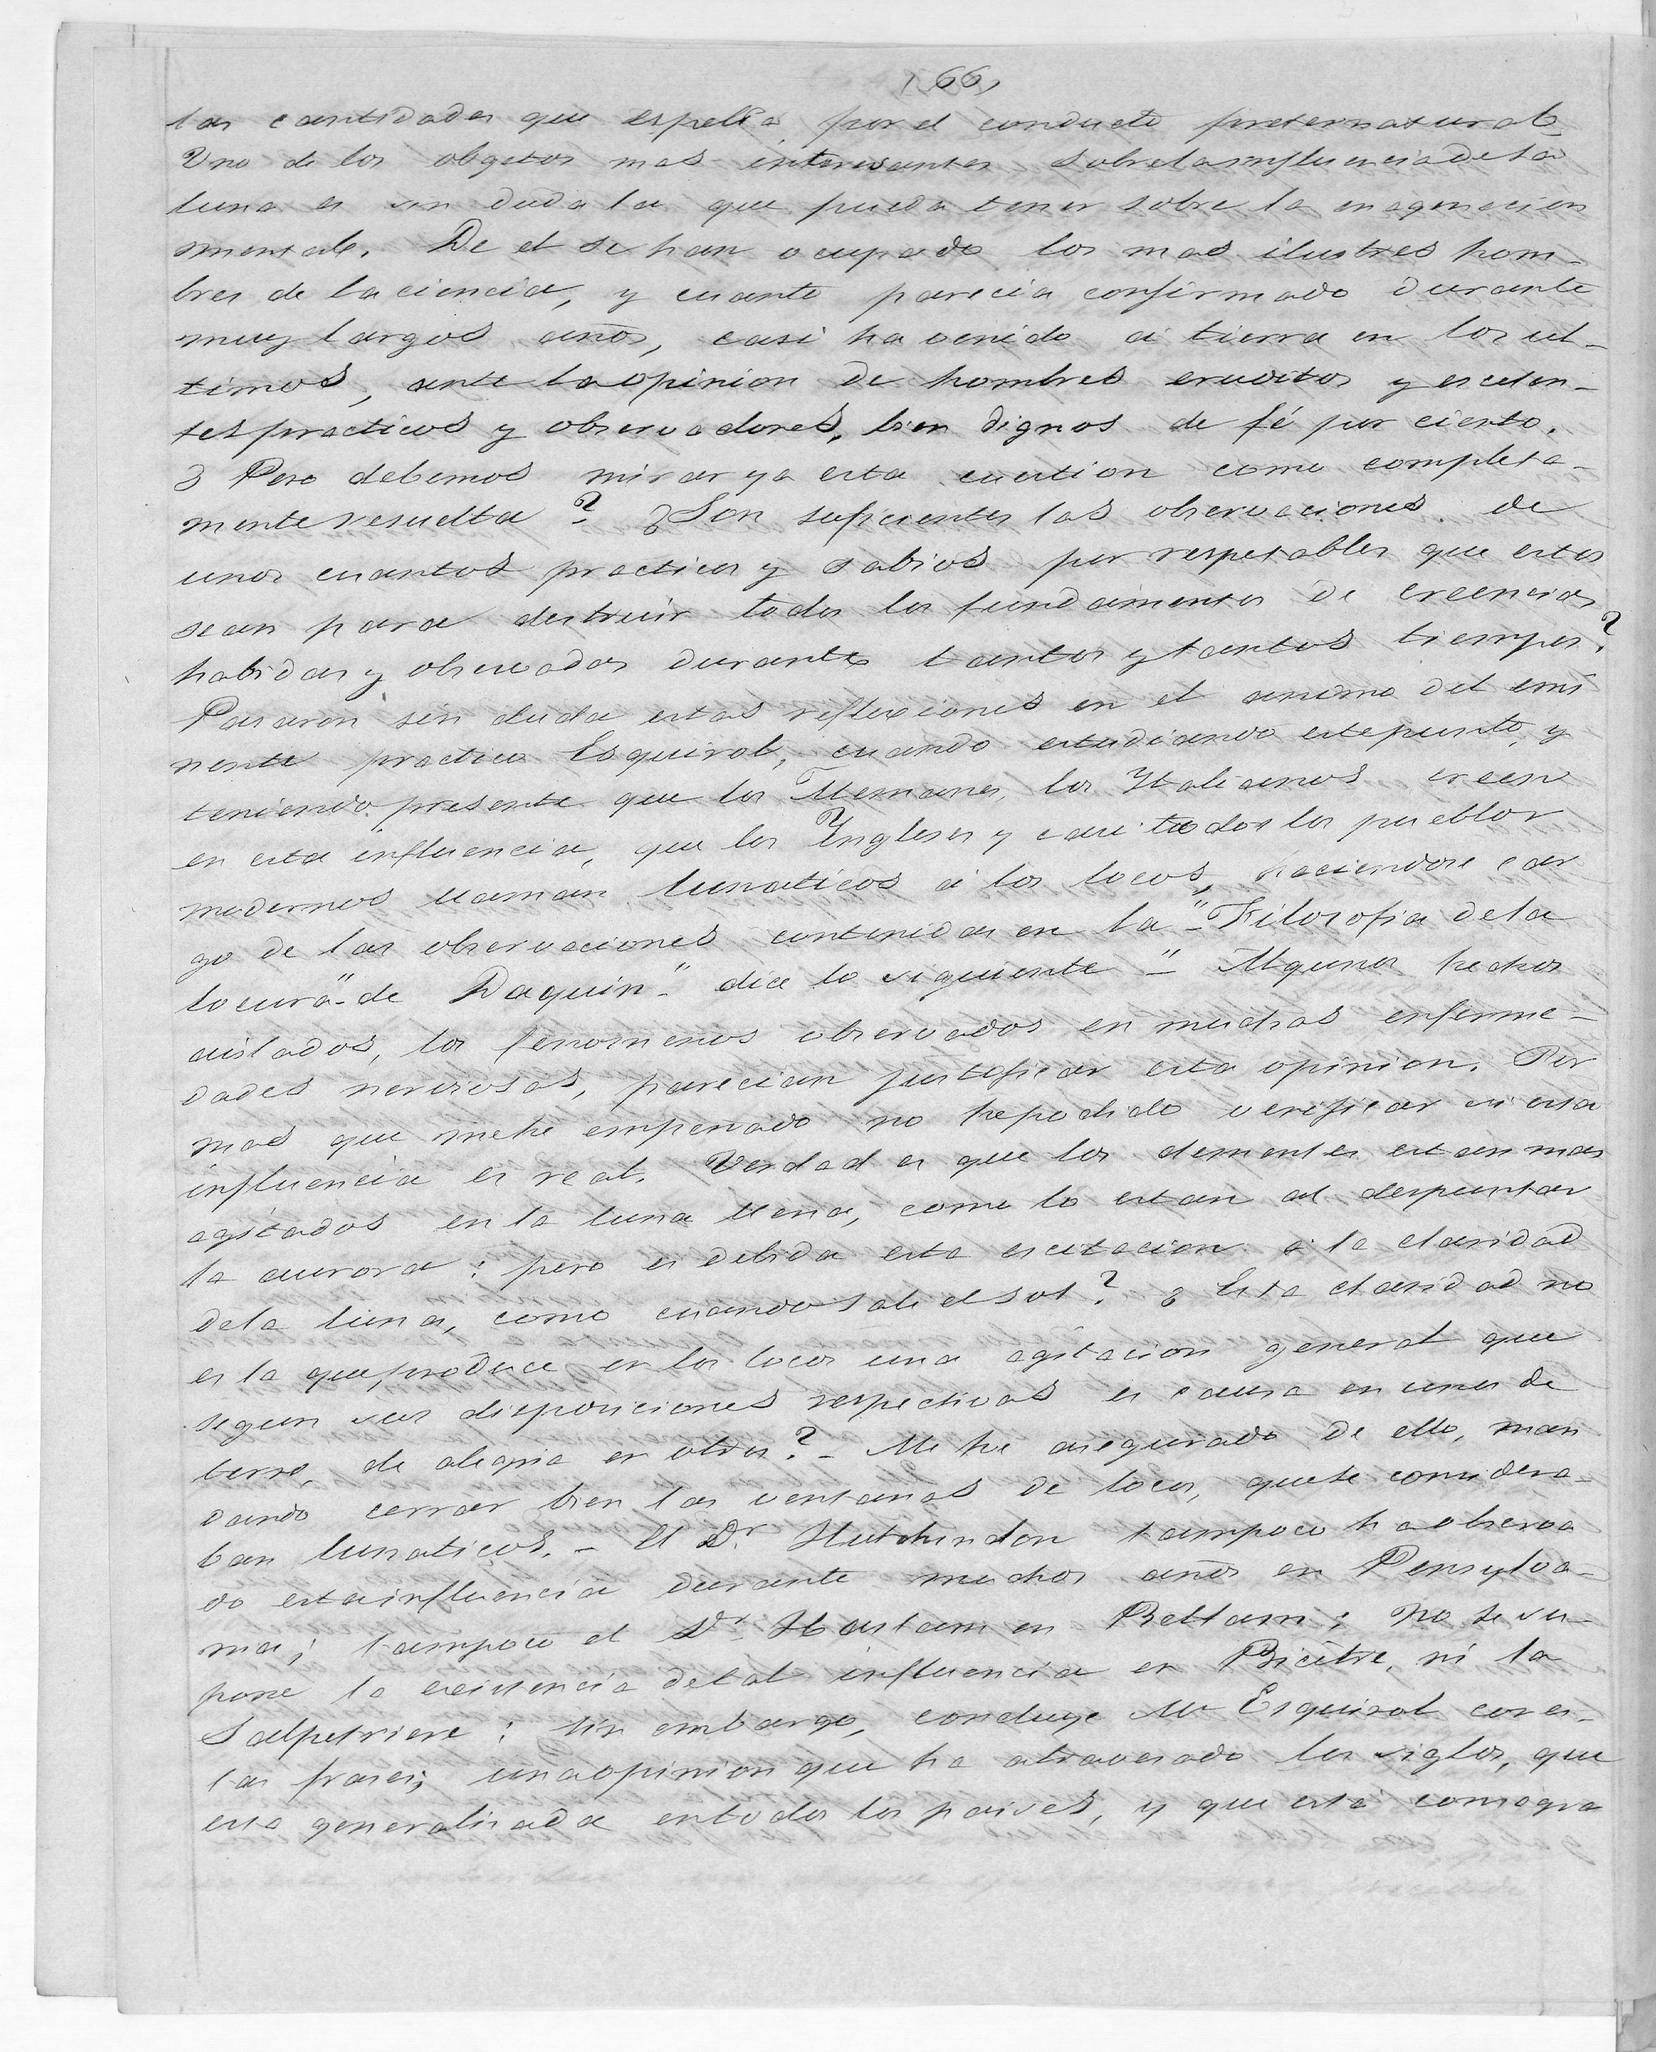 66,
las cantidades que espelia por el conducto preternatural.
Uno de los obgetos mas interesantes sobre la influencia de la
luna es sin duda la que pueda tener sobre la enagenacion
mental. De el se han ocupado los mas ilustres hom-
bres de la ciencia, y cuanto parecia confirmado durante
muy largos años, casi ha venido á tierra en los ul-
timos, ante la opinion de hombres eruditos y escelen-
tes practicos y observadores, bien dignos de fé por cierto.
¿ Pero debemos mirar ya esta cuestion como completa-
mente resuelta? ¿ Son suficientes las observaciones de
unos cuantos practicos y sabios por respetables que estos
sean para destruir todos los fundamentos de creencias
habidas y observadas durante tantos y tantos tiempos?
Pasaron sin duda estas reflexiones en el animo del emi
nente practico Esquirol, cuando estudiando este punto, y
teniendo presente que los Alemanes, los Italianos creen
en esta influencia, que los Ingleses y casi todos los pueblos
modernos llaman lunaticos á los locos, haciendose car
go de las observaciones contenidas en la "Filosofia de la
locura" de Daquin" dice lo siguiente "Algunos hechos
aislados, los fenomenos observados en muchas enferme-
dades nerviosas, parecian justificar esta opinion. Por
mas que me he empeñado no he podido verificar si esta
influencia es real. Verdad es que los dementes estan mas
agitados en la luna llena, como lo estan al despuntar
la aurora: pero es debida esta escitacion á la claridad
de la luna, como cuando sale el sol? ¿ Esta claridad no
es la que produce en los locos una agitacion general que
segun sus disposiciones respectivas es causa en unos de
terror, de alegria en otros? - Me he asegurado de ello, man
dando cerrar bien las ventanas de locos, que se considera-
ban lunaticos. - El Dr. Hutchindon tampoco ha observa
do esta influencia durante muchos años en Pensylva-
nia; tampoco el Dr. Haslam en Betlam; no se su-
pone la existencia de tal influencia en Bicétre, ni la
Salpetriere: sin embargo, concluye Mr Esquirol con es-
tas frases; una opinion que ha atravesado los siglos, que
esta generalizada en todos los paises, y que está consagra